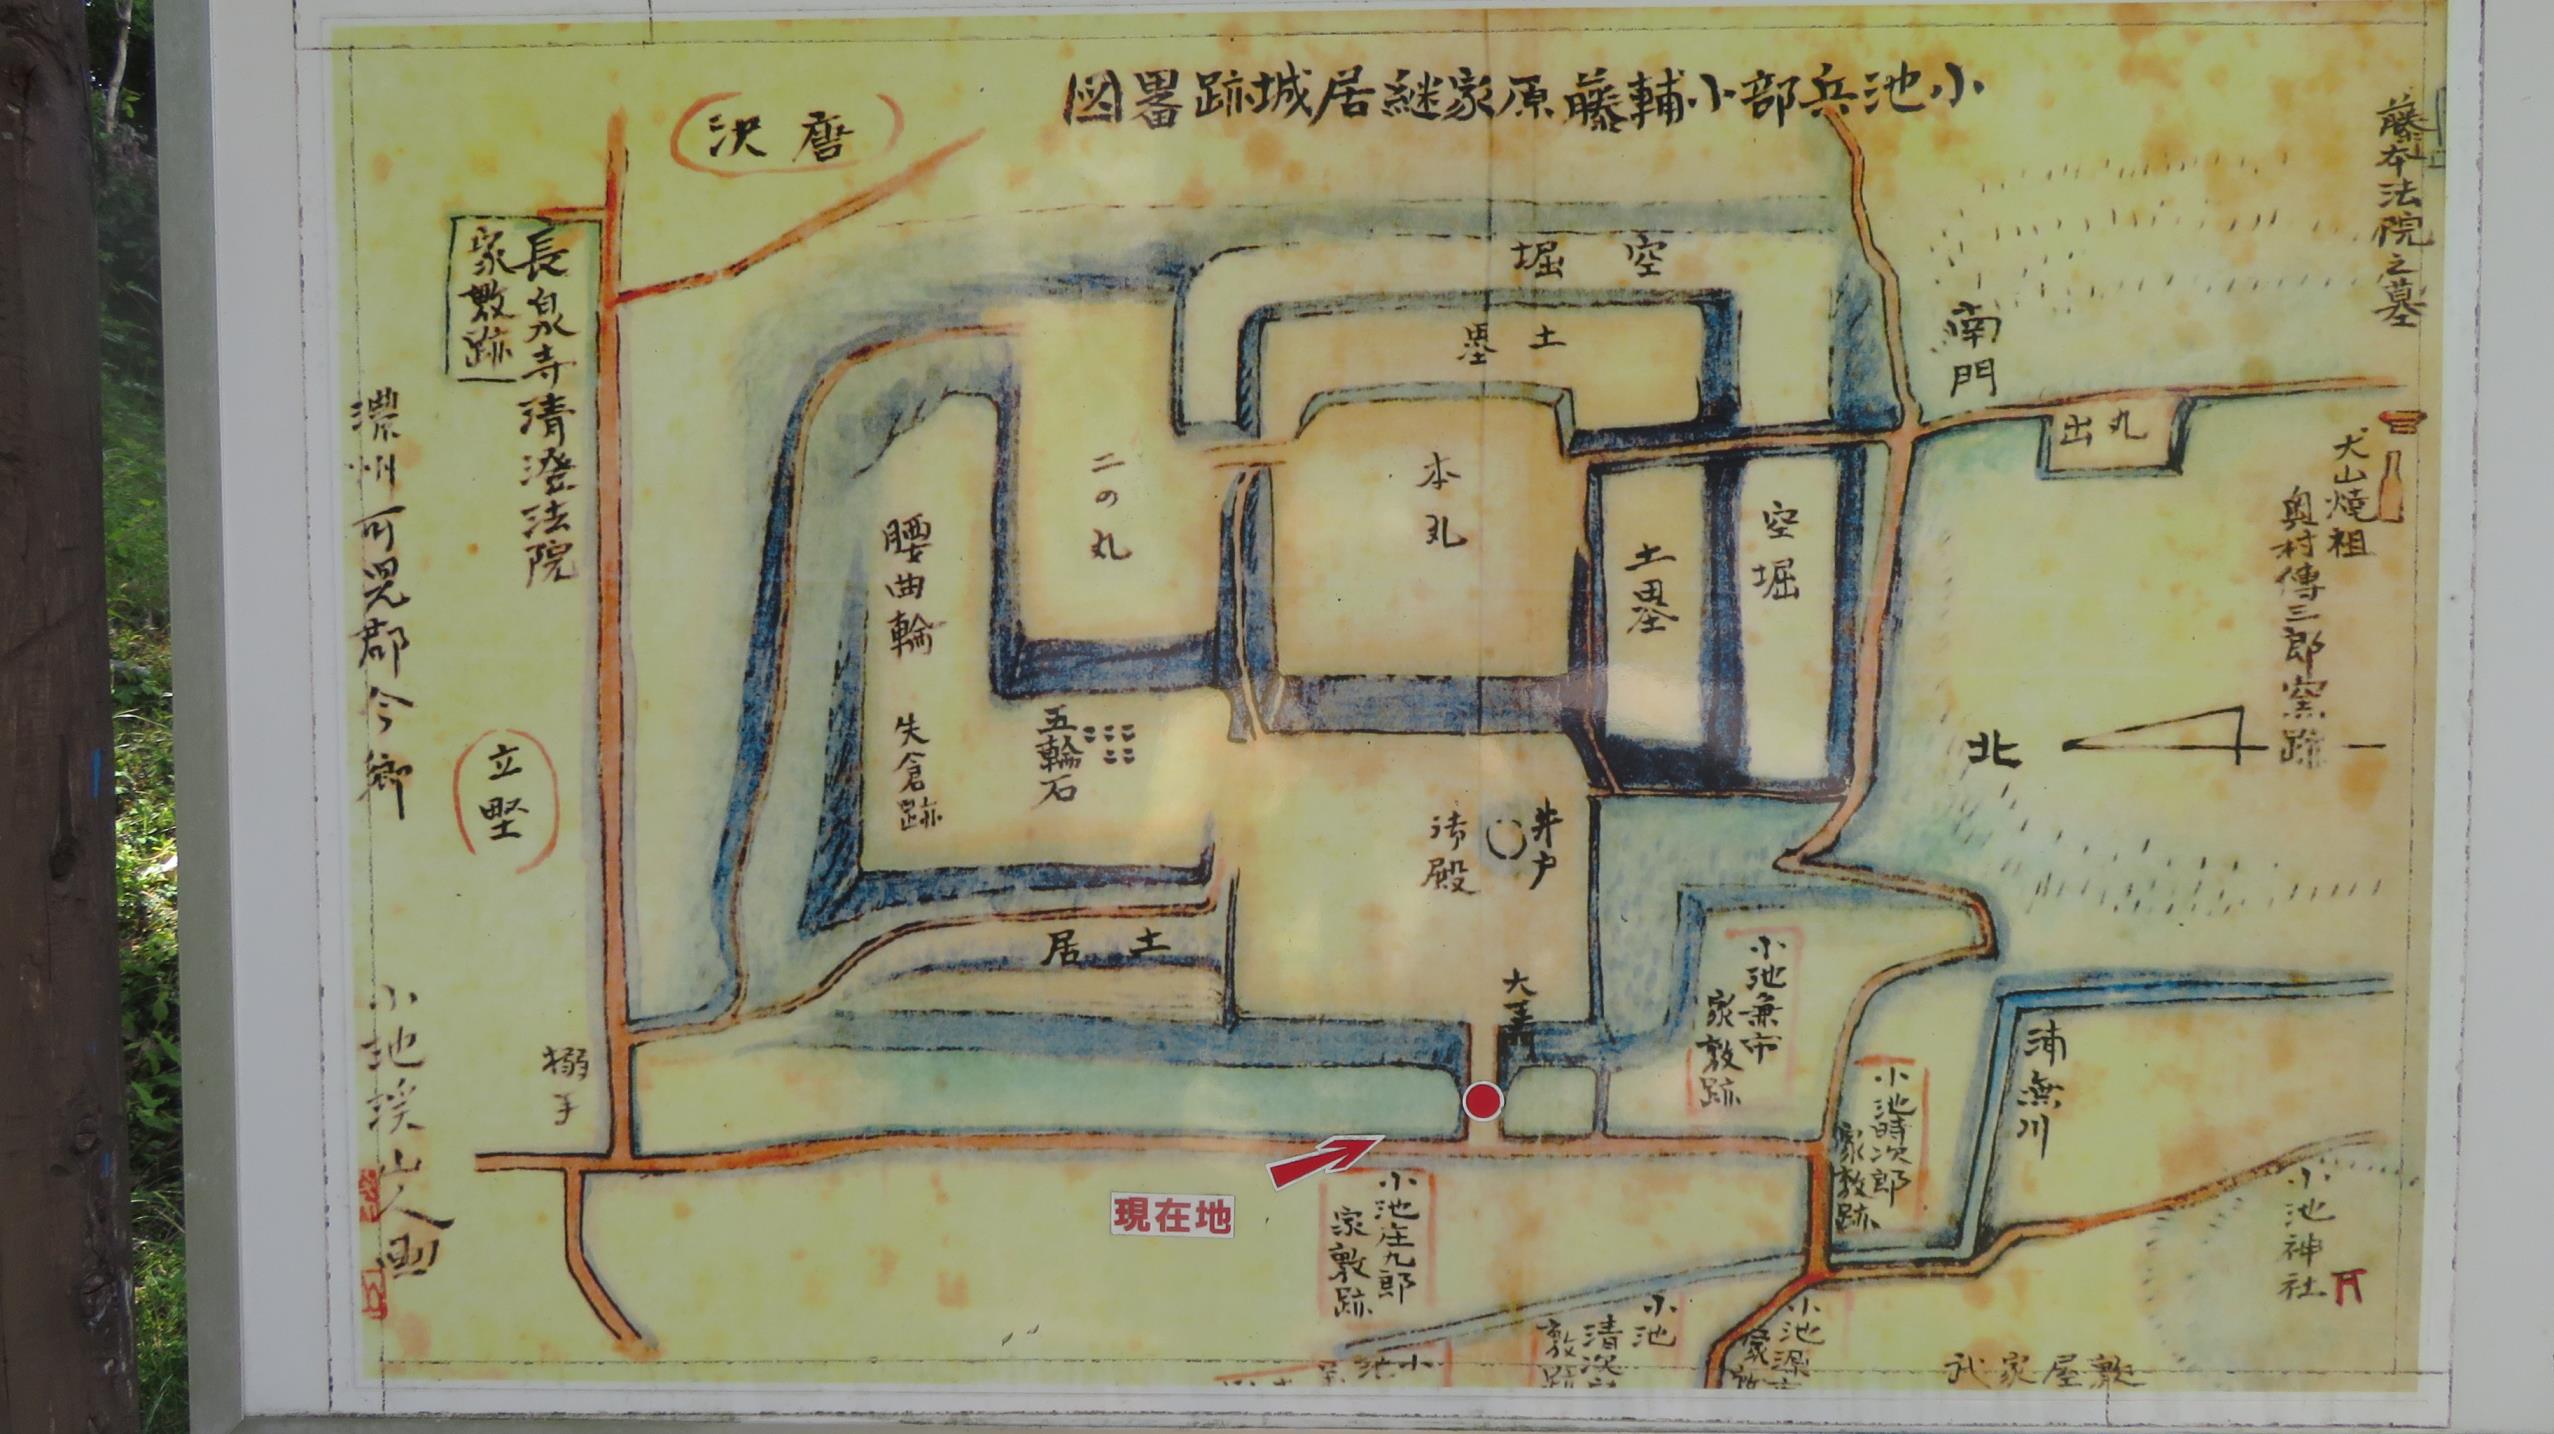 小池兵部小輔藤原家継居城跡畧図
藤本法院之墓
犬山焼祖
奥村傳三郎窯跡
南門
出丸
北
空堀
土塁
本丸
二の丸
土塁
空堀
腰曲輪
五輪石
井戸
御殿
土居
長泉寺清澄法院
家敷跡
立堅
搦手
濃州可児郡今郷
小池渓山人画
小池兼市
家敷跡
小池時次郎
家敷跡
小池庄九郎
家敷跡
現在地
小池神社
小池
武家屋敷